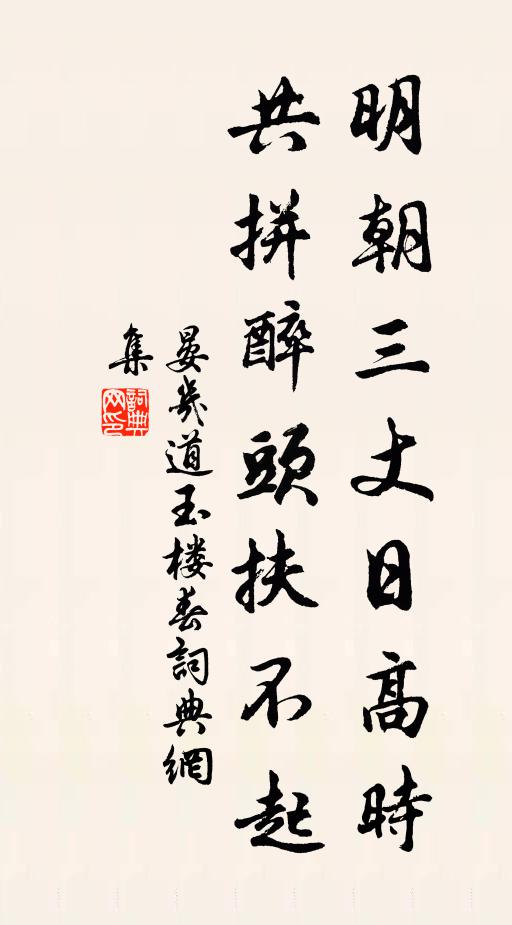 明朝三丈日高時
共拼醉頭扶不起
晏幾道玉楼春詞典網
集
詞典
网印